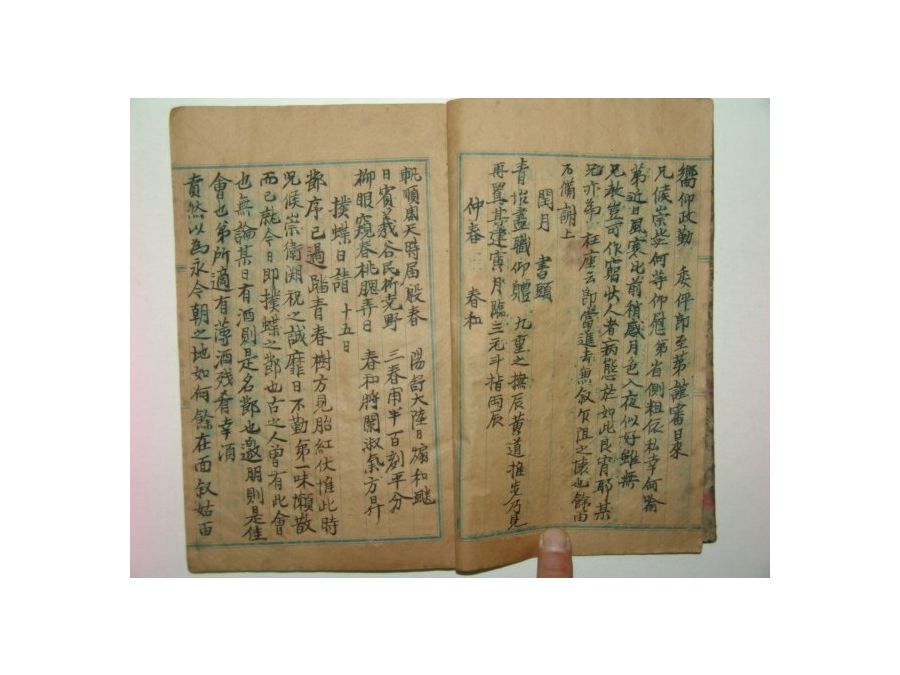 嚮仰政勤 委伻即至第謹審日來
兄候崇安何等仰慰第省側粗依私幸何喩
弟近日風寒比前稍感月色入夜似好雖無
兄敎豈可作窩伏人者病態於如此良宵耶某
兄亦第 在座云即當進去兼叙欠阻之懷也餘面
不備謝上
閏月 書頭
青 盡職仰體 九重之撫辰黃道推 乃見
再 其建寅月臨三元斗指兩辰
仲春 春和
帆順周天時屆殷春 陽舒大陸日煽和颸
日賓羲谷民析堯野 三春甫半百刻平分
柳眼窺春桃腮弄日 春和將闌淑氣方昇
撲蝶日請 十五日
節序已過踏青春樹方見胎紅伏惟此時
兄候崇衛溯祝之誠靡日不勤第一味懶散
而已就今日即撲蝶之節也古之人曾有此會
也無論某日有酒則是名節也邀朋則是佳
會也弟所適有薄酒殘肴幸酒
賁然以爲永今朝之地如何餘在面叙姑面